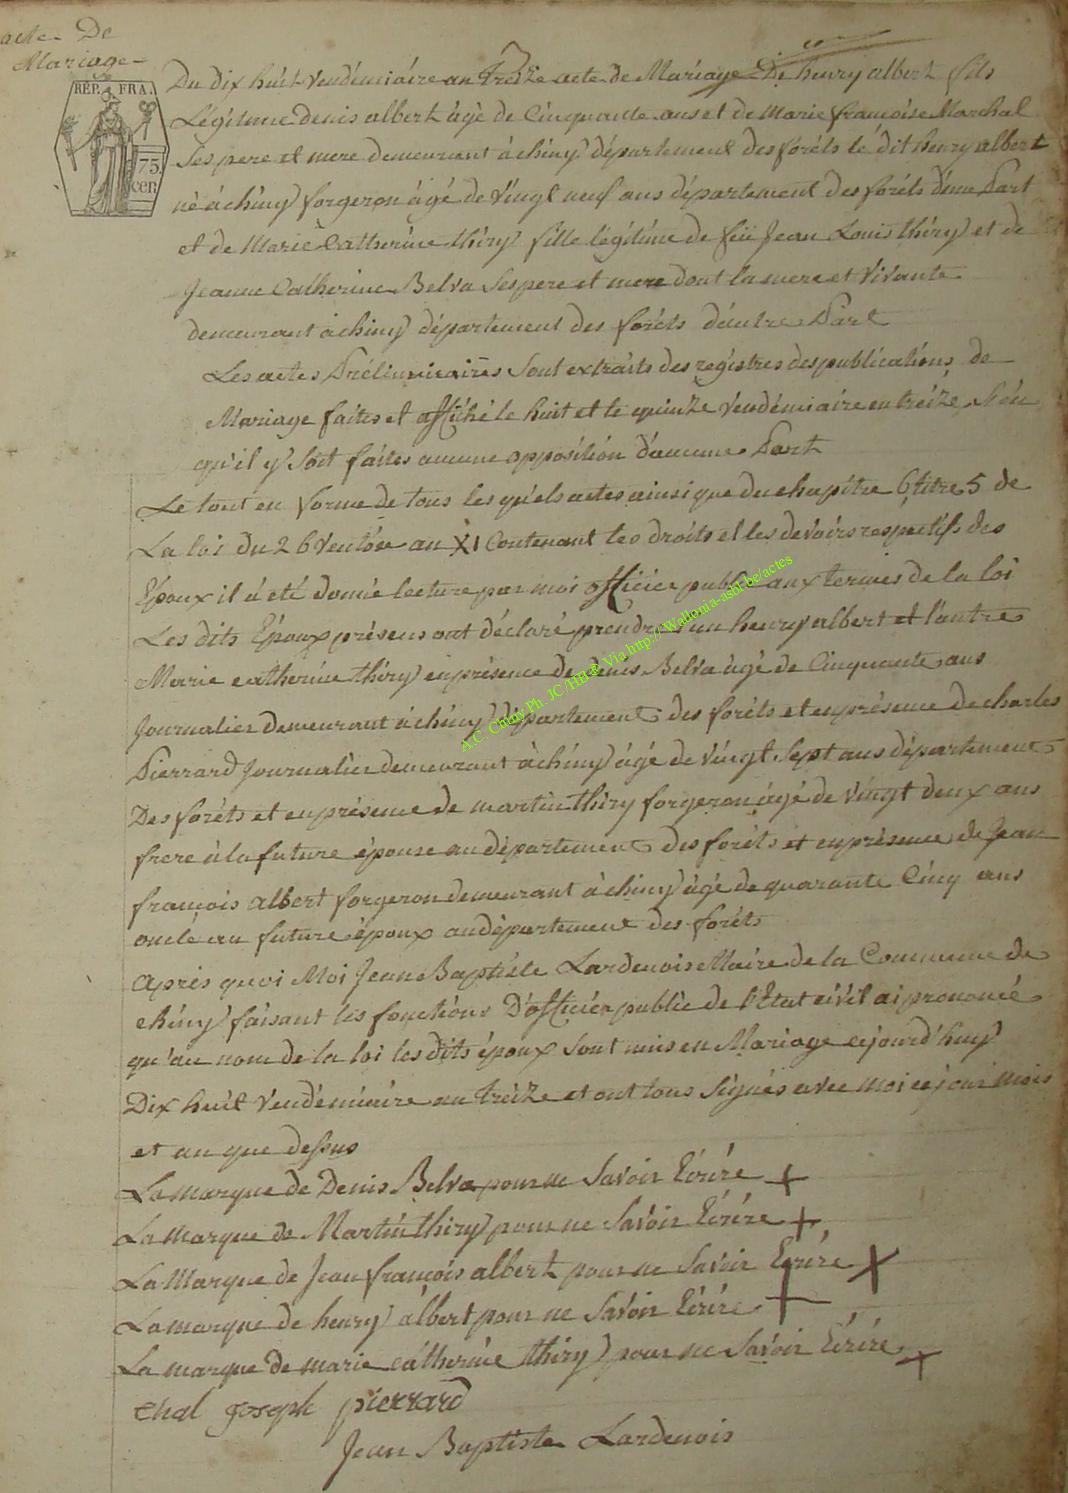 acte De
Mariage
REP. FRA.
75
cen
Du dix huit vendémiaire an Treize acte de Mariage De henry albert fils
Légitime denis albert âgé de Cinquante ans et de Marie françoise Marchal
Ses pere et mere demeurant à chiny département des forêts le dit henry albert
né à chiny forgeron âgé de vingt neuf ans département des forêts d'une Part
et de Marie Catherine thiry fille légitime de feü Jean Louis thiry et de
Jeanne Catherine Belva Ses pere et mere dont la mere et vivante
demeurant à chiny département des forêts d'autre Part
Les actes Préliminaires Sont extraits des régistres des publications de
Mariage faites et affiché le huit et le quinze vendémiaire an treize
qu'il y Soit faites aucune opposition d'aucune Part
Le tout en forme de tous les qu'els actes ainsi que du chapitre 6 titre 5 de
La loi du 26 ventôse an XI Contenant les droits et les devoirs respectifs des
Epoux il a été donné lecture par moi officier public aux termes de la loi
Les dits Epoux présens ont déclaré prendre l'un henry albert et l'autre
Marie catherine thiry en présence de denis Belva âgé de Cinquante ans
Journalier demeurant à chiny département des forêts et en présence de charles
Pierrard Journalier demeurant à chiny âgé de vingt Sept ans département
Des forêts et en présence de martin thiry forgeron âgé de vingt deux ans
frere à la future épouse au département des forêts et en présence de Jean
françois albert forgeron demeurant à chiny âgé de quarante Cinq ans
oncle au future époux au département des forêts
Après quoi Moi Jean Baptiste Lardenois Maire de la Commune de
chiny faisant les fonctions D'officier public de l'Etat civil ai prononcé
qu'au nom de la loi les dits époux Sont unis en Mariage cejourd'huy
Dix huit vendémiaire an treize et ont tous Signés avec moi ce jour mois
et an que dessus
La marque de Denis Belva pour ne Savoir Ecrire +
La marque de Martin thiry pour ne Savoir Ecrire +
La Marque de Jean françois albert pour ne Savoir Ecrire X
La marque de henry albert pour ne Savoir Ecrire +
La marque de marie catherine thiry pour ne Savoir Ecrire +
Chal Joseph pierrard
Jean Baptiste Lardenois
A.C. Chiny Ph. JC/HB & Via http://Wallonia-asbl-be/actes